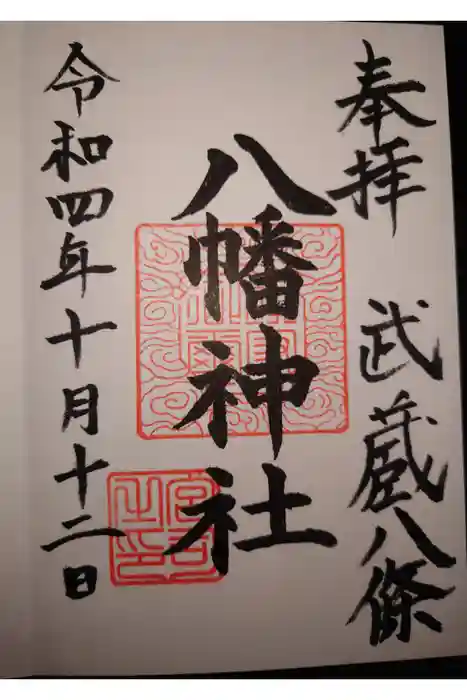 奉拝 武蔵八條
八幡神社
令和四年十月十二日